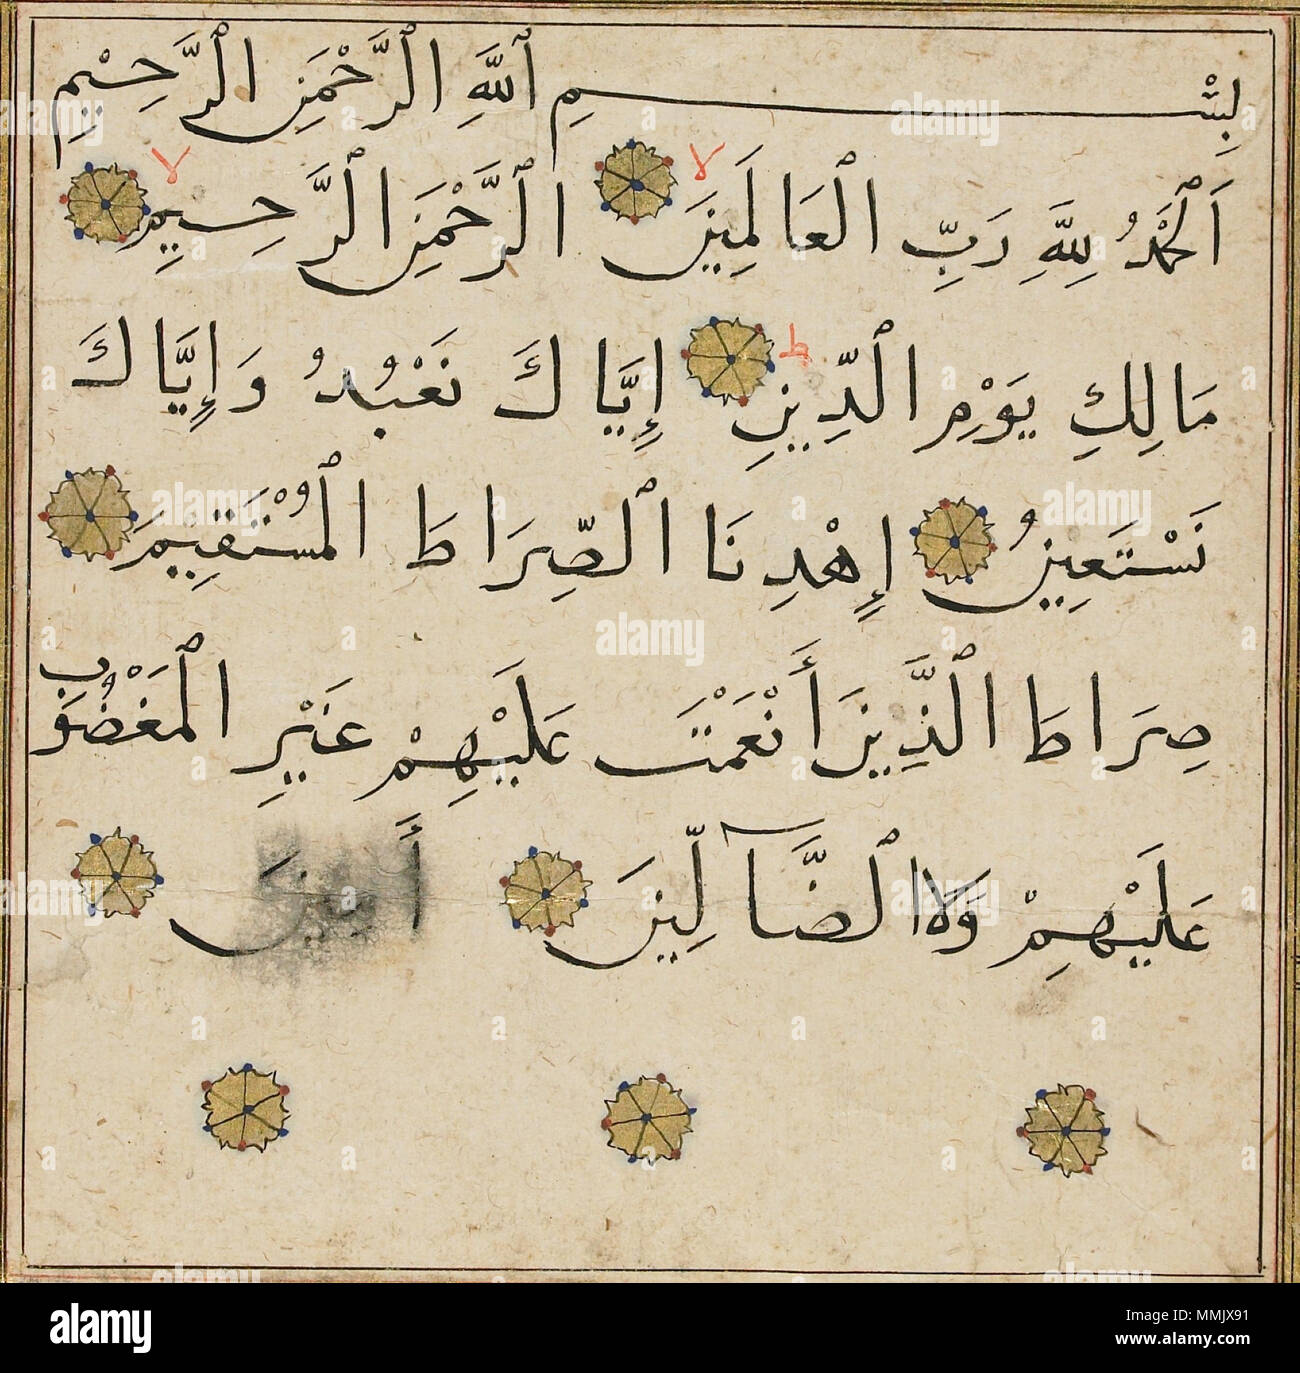 بِسْمِ ٱللَّهِ ٱلرَّحْمَنِ ٱلرَّحِيْمِ
لا لا
اَلْحَمْدُ لِلَّهِ رَبِّ ٱلْعَالَمِينَ ٱلرَّحْمَنِ ٱلرَّحِيمِ
ط
مَالِكِ يَوْمِ ٱلدِّينِ إِيَّاكَ نَعْبُدُ وَإِيَّاكَ
نَسْتَعِينُ إِهْدِنَا ٱلصِّرَاطَ ٱلْمُسْتَقِيمَ
صِرَاطَ ٱلَّذِينَ أَنْعَمْتَ عَلَيْهِمْ غَيْرِ ٱلْمَغْضُوبِ
عَلَيْهِمْ وَلَا ٱلضَّآلِّينَ أَمِينَ
alamy
Image ID: MMJX91
www.alamy.com